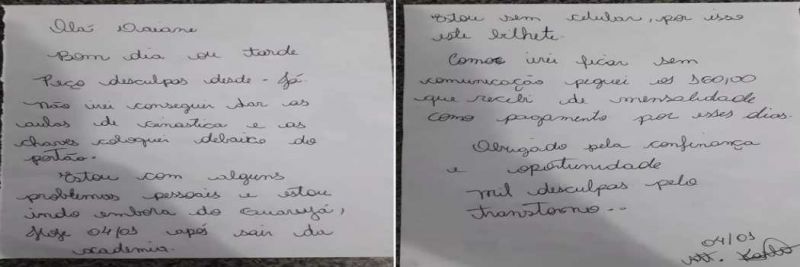 Olá Daiane
Bom dia ou tarde
Peço desculpas desde-já
não irei conseguir dar as
aulas de Ginastica e as
chaves coloquei debaixo do
portão.
Estou com alguns
problemas pessoais e estou
indo embora do Guarujá,
Hoje 04/01 após sair da
academia.
Estou sem celular, por isso
este bilhete.
Como irei ficar sem
comunicação peguei os 160,00
que recebi de mensalidade
como pagamento por esses dias.
Obrigado pela confinança
e oportunidade
mil desculpas pelo
transtorno..
04/01
Att.